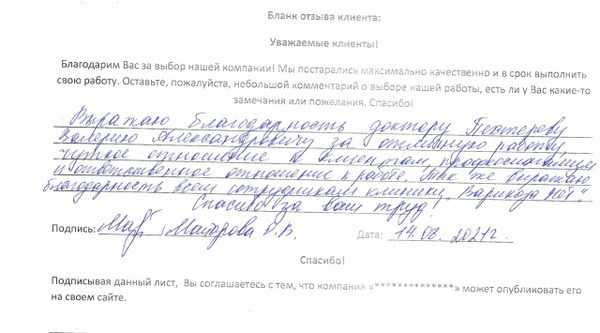 Бланк отзыва клиента:
Уважаемые клиенты!
Благодарим Вас за выбор нашей компании! Мы постарались максимально качественно и в срок выполнить
свою работу. Оставьте, пожалуйста, небольшой комментарий о выборе нашей работы, есть ли у Вас какие-то
замечания или пожелания. Спасибо!
Выражаю благодарность доктору Пехтереву
Валерию Александровичу за отличную работу,
чуткое отношение к клиентам, профессионализм
и ответственное отношение к работе. Так же выражаю
благодарность всем сотрудникам клиники „Варикоза нет".
Спасибо за ваш труд!
Подпись: Май Майорова
Дата: 14.08.2021г.
Спасибо!
Подписывая данный лист, Вы соглашаетесь с тем, что компания «**************» может опубликовать его
на своем сайте.